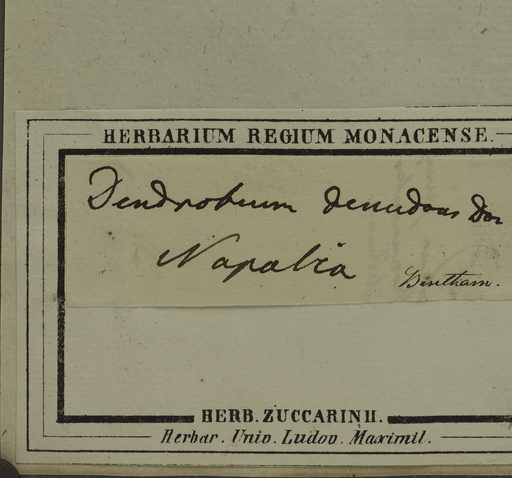 HERBARIUM REGIUM MONACENSE.
Dendrobium denudans Don
Napalia
Bentham.
HERB. ZUCCARINII.
Herbar. Univ. Ludov. Maximil.